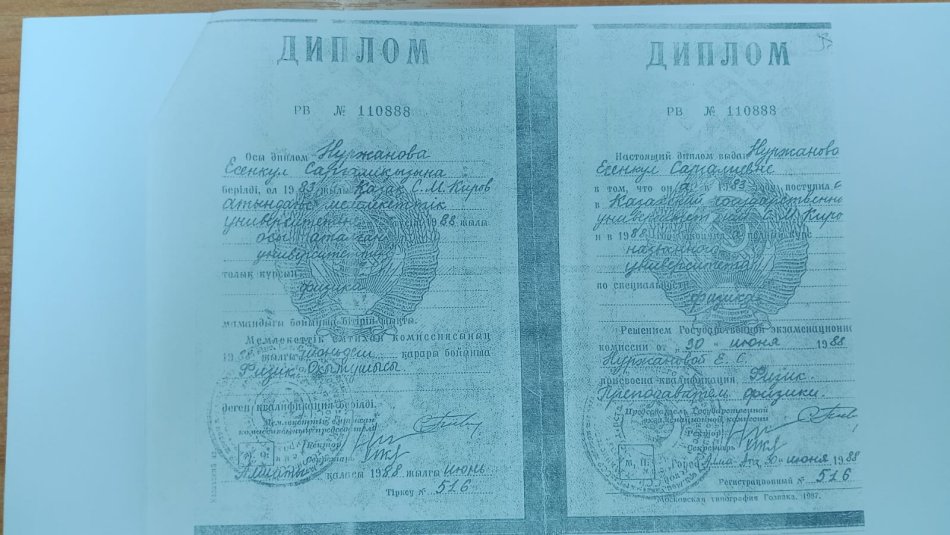 ДИПЛОМ
РВ № 110888
Осы диплом Нуржанова
Есенкул Саргалиқызына
берілді, ол 1983 жылы Казак С.М. Киров
атындағы мемлекеттік
университетіне 1988 жылы
осы аталған
университеттің
толық курсын
физика
мамандығы бойынша бітіріп шықты.
Мемлекеттік емтихан комиссиясының
жылғы қарары бойынша
Физик. Оқытушысы
деген квалификация берілді.
Мемлекеттік емтихан
комиссиясының председателі
Ректор
Секретарь
М. О.
Алматы қаласы 1988 жылғы июнь
Тіркеу № 516
ДИПЛОМ
РВ № 110888
Настоящий диплом выдан Нуржаново
Есенкул Саргалиевне
в том, что он а в 1983 году поступил а
в Казахский государственн
университет им. С.М. Киро
и в 1988 полный курс
названного
университета
по специальности
физика
Решением Государственной экзаменационно
комиссии от „30“ июня 1988
Нуржановой Е. С.
присвоена квалификация Физик.
Преподаватель физики.
Председатель Государственной
экзаменационной комиссии
Ректор
Секретарь
М. П.
Город 30 июня 1988
Регистрационный № 516
Московская типография Гознака. 1987.